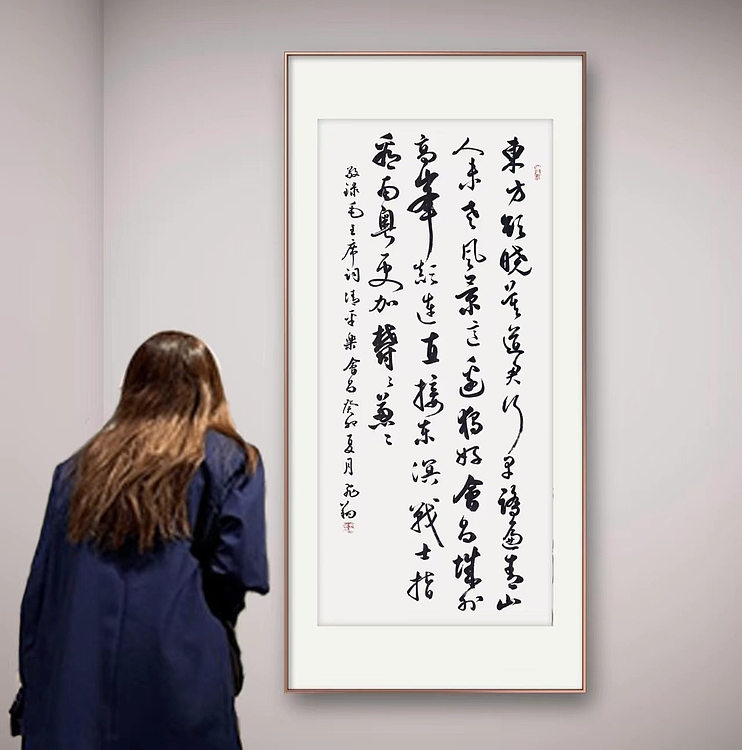 東方欲曉莫道君行早踏遍青山
人未老風景這邊獨好會昌城外
高峰顛連直接東溟戰士指
看南粵更加鬱〻蔥〻
敬錄毛主席詞清平樂會昌癸卯夏月